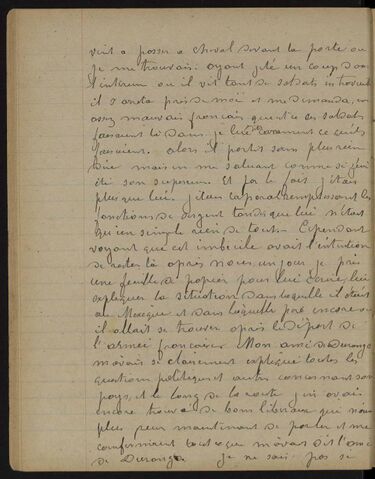 vint a passer a cheval devant la porte ou
je me trouvais. Ayant jeté un coup d'oeil
l'interieur ou il vit tant de soldats
il s'arreta près de moi et me demanda, en
assez mauvais français ce que ces soldats
faisaient là dans. Je lui ce qu'ils
faisaient. alors il partit sans plus rien
dire mais en me saluant comme si j'eusse
été son superieur. Et par le fait j'étais
plus que lui. J'etais caporal remplissant les
fonctions de sergent tandis que lui n'était
qu'un simple rien de tout. Cependant
voyant que cet imbecile avait l'intention
de rester là après nous, un jour je pris
une feuille de papier pour lui ecrire, lui
expliquer la situation dans laquelle il était
au Mexique et dans laquelle pire encore
il allait se trouver après le départ de
l'armée française. Mon ami de Durango
m'avait si clairement expliqué toutes les
questions politiques et autres concernant son
pays, et le long de la route j'en avais
encore trouvé de bons liberaux que nous
plus peur maintenant de parler et me
confirmèrent tout ce que m'avait dit l'ami
de Durango. Je ne sais pas si